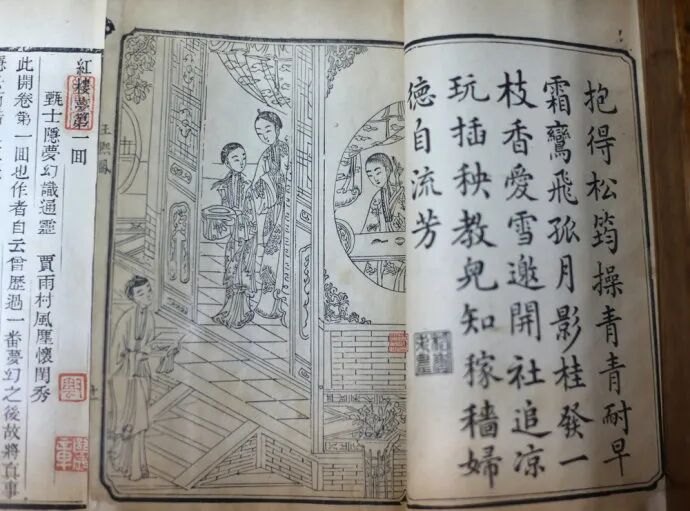 抱得松筠操青青耐早
霜鸞飛孤月影桂發一
枝香愛雪邀開社追凉
玩插秧教兒知稼穡婦
德自流芳
王熙鳳
紅樓夢第一回
甄士隱夢幻識通靈 賈雨村風塵懷閨秀
此開卷第一回也作者自云曾歷過一番夢幻之後故將真事